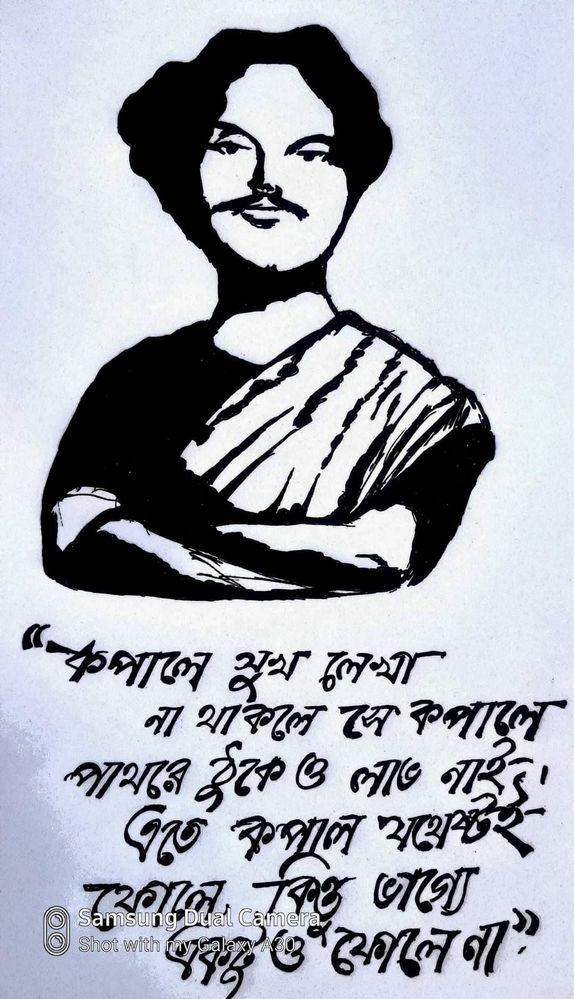 “কপালে সুখ লেখা
না থাকলে সে কপালে
পাথরে ঠুকে ও লাভ নাই,
এতে কপাল যথেষ্টই
ফোলে, কিন্তু ভাগ্যে
একটু ও ফোলে না”
Samsung Dual Camera
Shot with my Galaxy A30